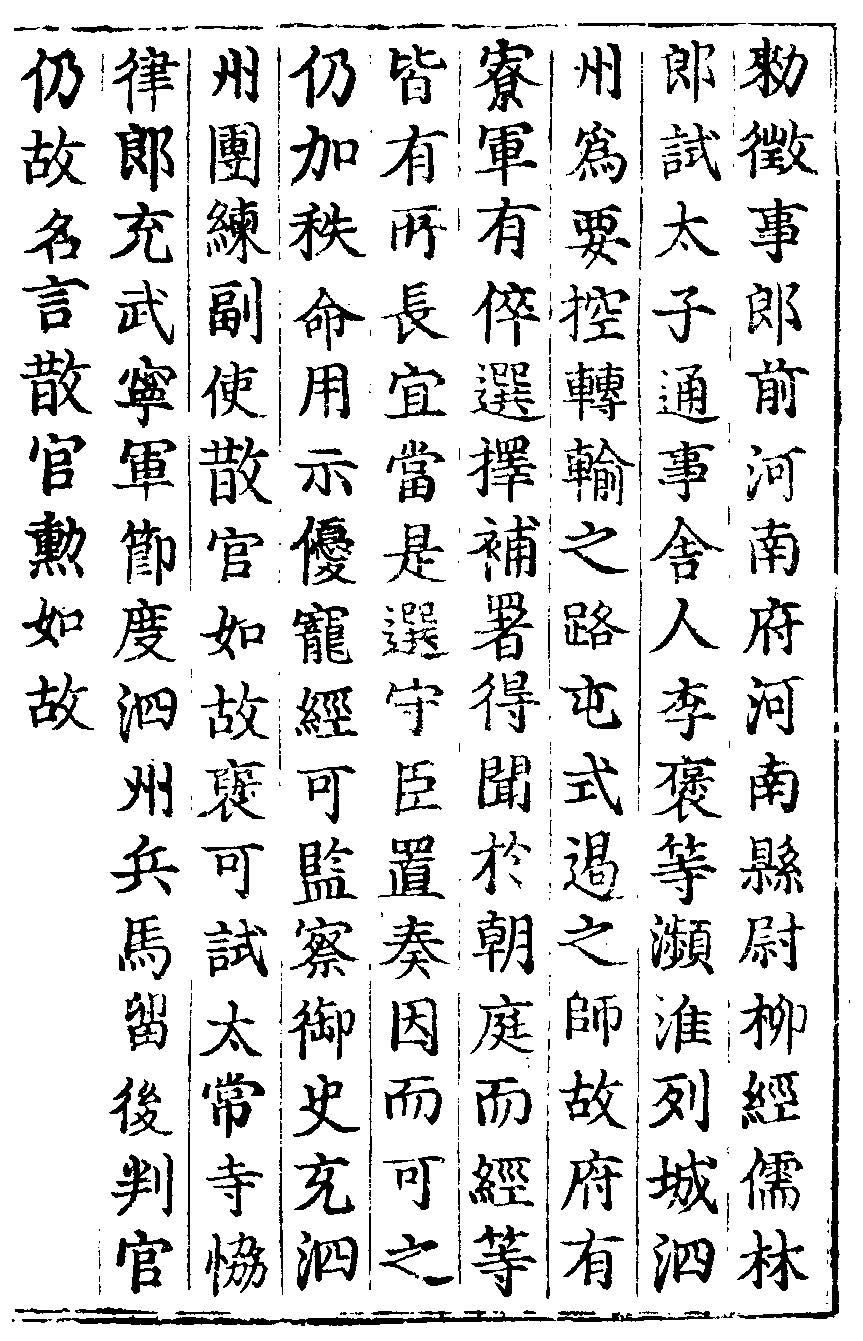 勑徵事郎前河南府河南縣尉柳經儒林
郎試太子通事舍人李褒等瀕淮列城泗
州爲要控轉輸之路屯式遏之師故府有
寮軍有倅選擇補署得聞於朝庭而經等
皆有所長宜當是選守臣置奏因而可之
仍加秩命用示優寵經可監察御史充泗
州團練副使散官如故褒可試太常寺恊
律郎充武寧軍節度泗州兵馬留後判官
仍故名言散官勲如故